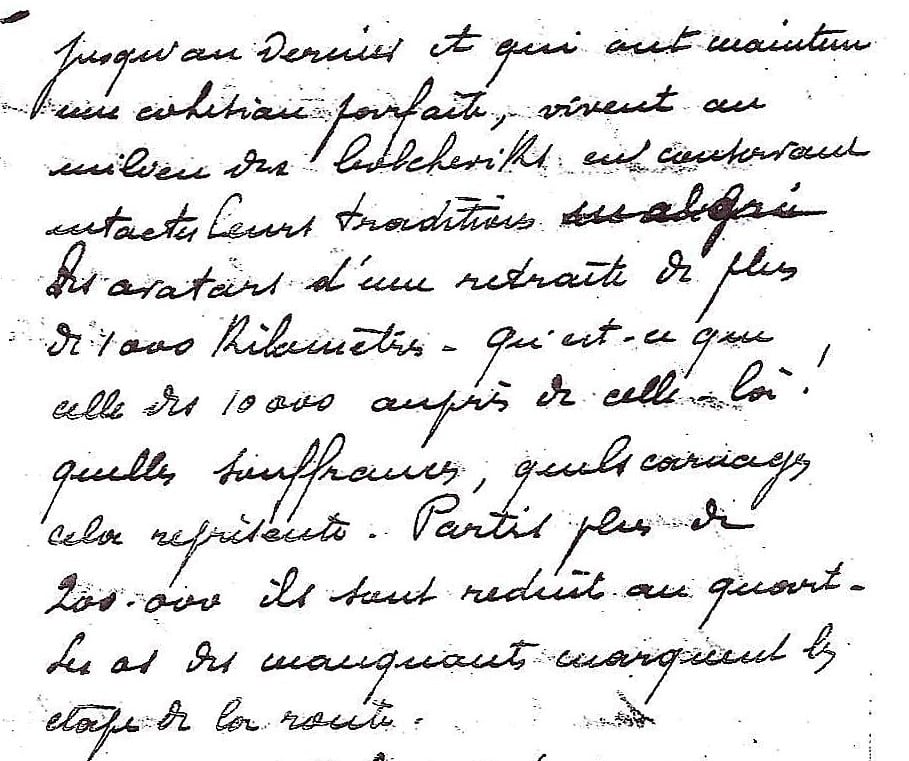 jusqu'au dernier et qui ont maintenu
une cohésion parfaite, vivent au
milieu des bolcheviks en conservant
intactes leurs traditions malgré
les avatars d'une retraite de plus
de 1000 Kilomètres - qu'est-ce que
celle des 10000 auprès de celle-là !
quelles souffrances, quels carnages
cela représente. Partis plus de
200.000 ils sont reduit au quart -
Les os des manquants marquent les
etape de la route.